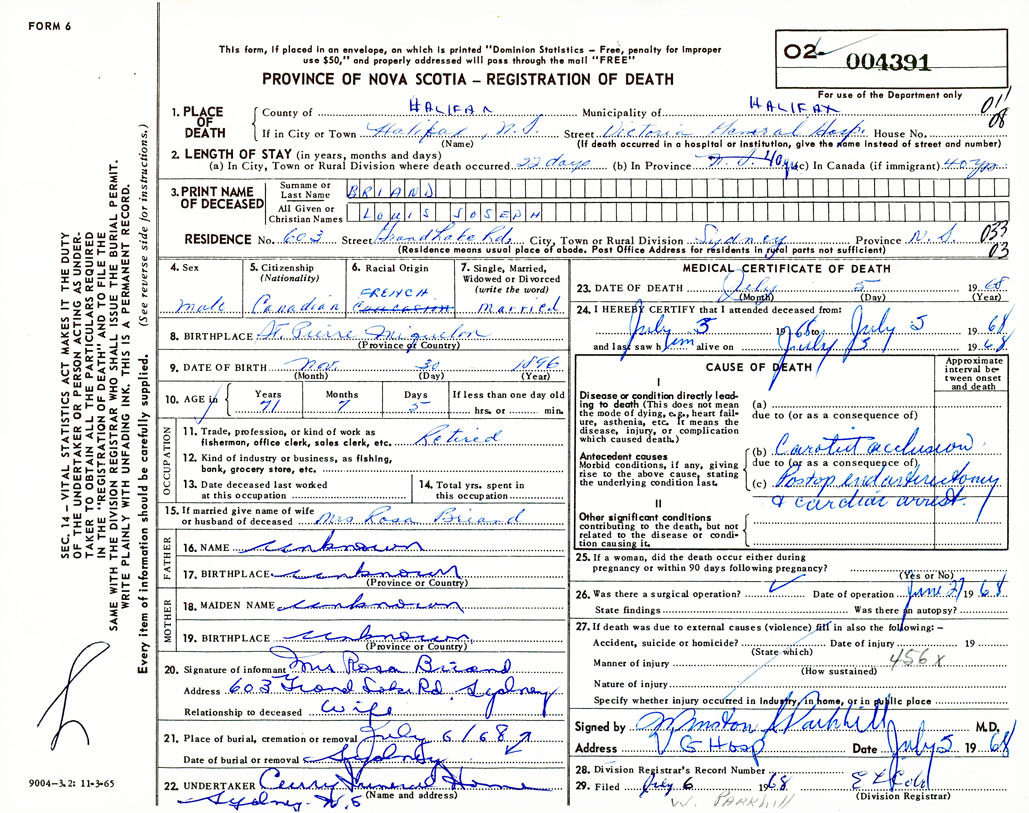 FORM 6
This form, if placed in an envelope, on which is printed "Dominion Statistics – Free, penalty for improper
use $50," and properly addressed will pass through the mail "FREE"
PROVINCE OF NOVA SCOTIA – REGISTRATION OF DEATH
02- 004391
For use of the Department only
011
08
1. PLACE OF DEATH County of HALIFAX Municipality of HALIFAX
If in City or Town Halifax, N.S. Street Victoria General Hosp. House No.
(Name) (If death occurred in a hospital or institution, give the name instead of street and number)
2. LENGTH OF STAY (in years, months and days)
(a) In City, Town or Rural Division where death occurred 22 days (b) In Province N.S. 40 yrs (c) In Canada (if immigrant) 40 yrs
3. PRINT NAME OF DECEASED
Surname or Last Name BRIAND
All Given or Christian Names LOUIS JOSEPH
RESIDENCE No. 603 Street Grand Lake Rd. City, Town or Rural Division Sydney Province N.S.
(Residence means usual place of abode. Post Office Address for residents in rural parts not sufficient)
033
03
4. Sex male
5. Citizenship (Nationality) Canadian
6. Racial Origin FRENCH Caucasian
7. Single, Married, Widowed or Divorced (write the word) married
8. BIRTHPLACE St. Pierre Miquelon
(Province or Country)
9. DATE OF BIRTH Nov. 30 1896
(Month) (Day) (Year)
10. AGE in Years 71 Months 7 Days 5 If less than one day old hrs. or min.
OCCUPATION
11. Trade, profession, or kind of work as fisherman, office clerk, sales clerk, etc. Retired
12. Kind of industry or business, as fishing, bank, grocery store, etc.
13. Date deceased last worked at this occupation
14. Total yrs. spent in this occupation
15. If married give name of wife or husband of deceased Mrs Rosa Briand
FATHER
16. NAME unknown
17. BIRTHPLACE unknown
(Province or Country)
MOTHER
18. MAIDEN NAME unknown
19. BIRTHPLACE unknown
(Province or Country)
20. Signature of informant Mrs Rosa Briand
Address 603 Grand Lake Rd. Sydney
Relationship to deceased Wife
21. Place of burial, cremation or removal July 6/68
Date of burial or removal Sydney
22. UNDERTAKER Curry Funeral Home
Sydney N.S (Name and address)
MEDICAL CERTIFICATE OF DEATH
23. DATE OF DEATH July 5 1968
(Month) (Day) (Year)
24. I HEREBY CERTIFY that I attended deceased from:
July 3 1968 to July 5 1968
and last saw him alive on July 5 1968
CAUSE OF DEATH
Approximate interval between onset and death
I
Disease or condition directly leading to death (This does not mean the mode of dying, e.g., heart failure, asthenia, etc. It means the disease, injury, or complication which caused death.)
(a)
due to (or as a consequence of)
Antecedent causes
Morbid conditions, if any, giving rise to the above cause, stating the underlying condition last.
(b) Carotid occlusion
due to (or as a consequence of)
(c) Postop endarterectomy
& cardiac arrest.
II
Other significant conditions contributing to the death, but not related to the disease or condition causing it.
25. If a woman, did the death occur either during pregnancy or within 90 days following pregnancy?
(Yes or No)
26. Was there a surgical operation? ✓ Date of operation June 21 1968
State findings Was there an autopsy?
27. If death was due to external causes (violence) fill in also the following: –
Accident, suicide or homicide? Date of injury 19
(State which)
Manner of injury 456 x
(How sustained)
Nature of injury
Specify whether injury occurred in industry, in home, or in public place
Signed by Winston Parkhill M.D.
Address V G Hosp Date July 5 1968
28. Division Registrar's Record Number
29. Filed July 6 1968
(Division Registrar)
W. PARKHILL
SEC. 14 – VITAL STATISTICS ACT MAKES IT THE DUTY
OF THE UNDERTAKER OR PERSON ACTING AS UNDER-
TAKER TO OBTAIN ALL THE PARTICULARS REQUIRED
IN THE "REGISTRATION OF DEATH" AND TO FILE THE
SAME WITH THE DIVISION REGISTRAR WHO SHALL ISSUE THE BURIAL PERMIT.
WRITE PLAINLY WITH UNFADING INK. THIS IS A PERMANENT RECORD.
Every item of information should be carefully supplied. (See reverse side for instructions.)
9004-3.2: 11-3-65